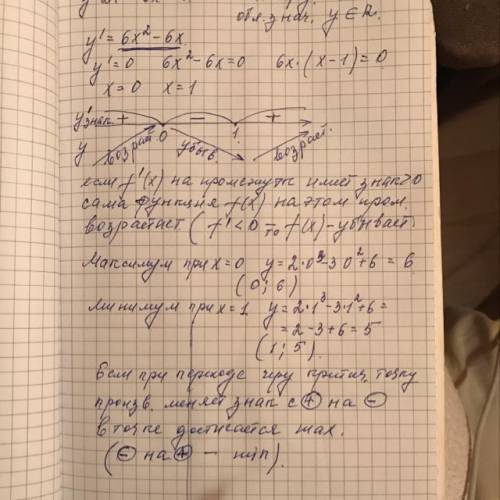 обл. знач. y ∈ R.
y' = 6x² − 6x
y' = 0   6x² − 6x = 0   6x·(x−1) = 0
x = 0   x = 1
y' знак + 0 − 1 +
y возраст. убыв. возраст.
если f'(x) на промежутк имеет знак >0
сама функция f(x) на этом пром.
возрастает (f' < 0 то f(x) − убывает.
Максимум при x = 0   y = 2·0³ − 3·0² + 6 = 6
(0; 6)
Минимум при x = 1   y = 2·1³ − 3·1² + 6 =
= 2 − 3 + 6 = 5
(1; 5).
Если при переходе чер критич. точку
произв. меняет знак с ⊕ на ⊖
в точке достигается max.
(⊖ на ⊕ − min).